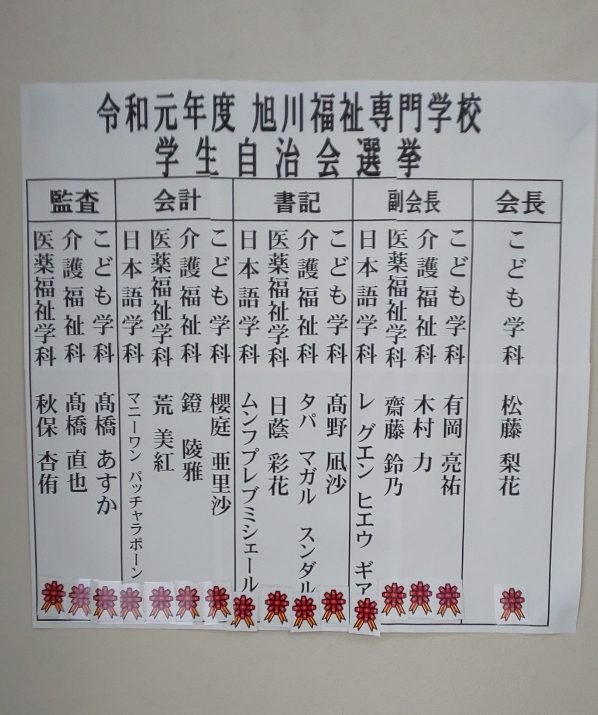 令和元年度 旭川福祉専門学校
学生自治会選挙
会長
こども学科 松藤 梨花
副会長
こども学科 有岡 亮祐
介護福祉科 木村 力
医薬福祉学科 齋藤 鈴乃
日本語学科 レ グエン ヒエウ ギア
書記
こども学科 髙野 凪沙
介護福祉科 タパ マガル スンダル
医薬福祉学科 日蔭 彩花
日本語学科 ムンフプレブミシェール
会計
こども学科 櫻庭 亜里沙
介護福祉科 鐙 陵雅
医薬福祉学科 荒 美紅
日本語学科 マニーワン パッチャラポーン
監査
こども学科 髙橋 あすか
介護福祉科 髙橋 直也
医薬福祉学科 秋保 杏侑